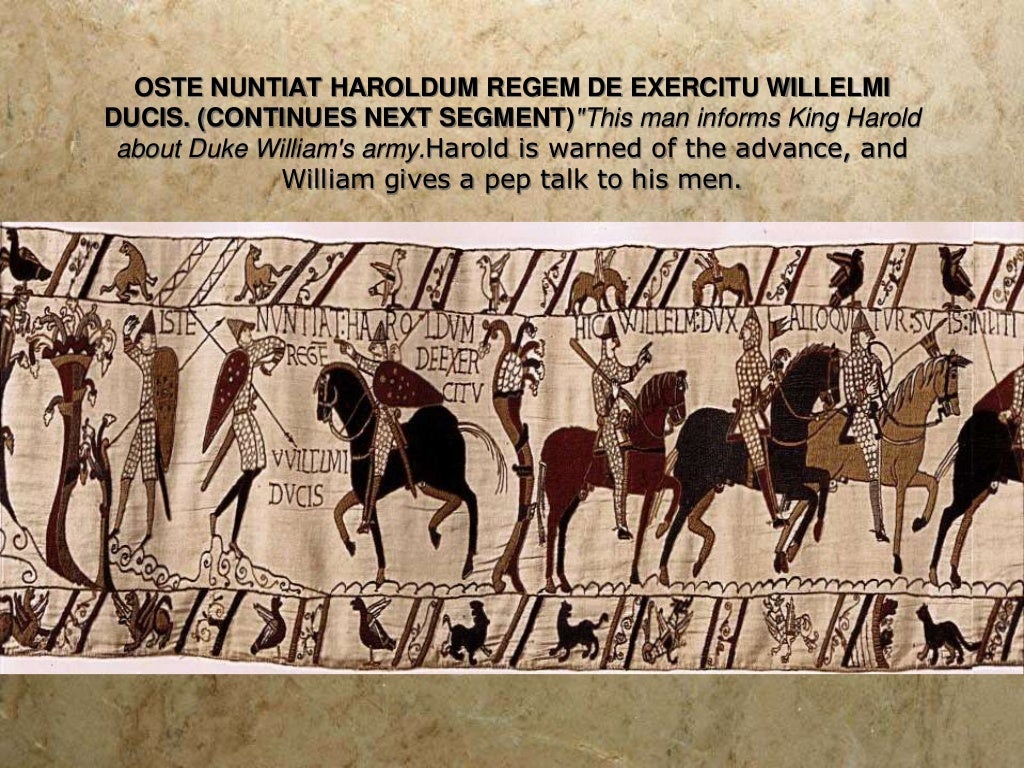 OSTE NUNTIAT HAROLDUM REGEM DE EXERCITU WILLELMI
DUCIS. (CONTINUES NEXT SEGMENT)"This man informs King Harold
about Duke William's army.Harold is warned of the advance, and
William gives a pep talk to his men.
ISTE NVNTIAT: HAROLDVM
REGĒ
DE EXER
CITV
VVILELMI
DVCIS
HIC WILLELM: DVX ALLOQVITVR: SVIS: MILITI